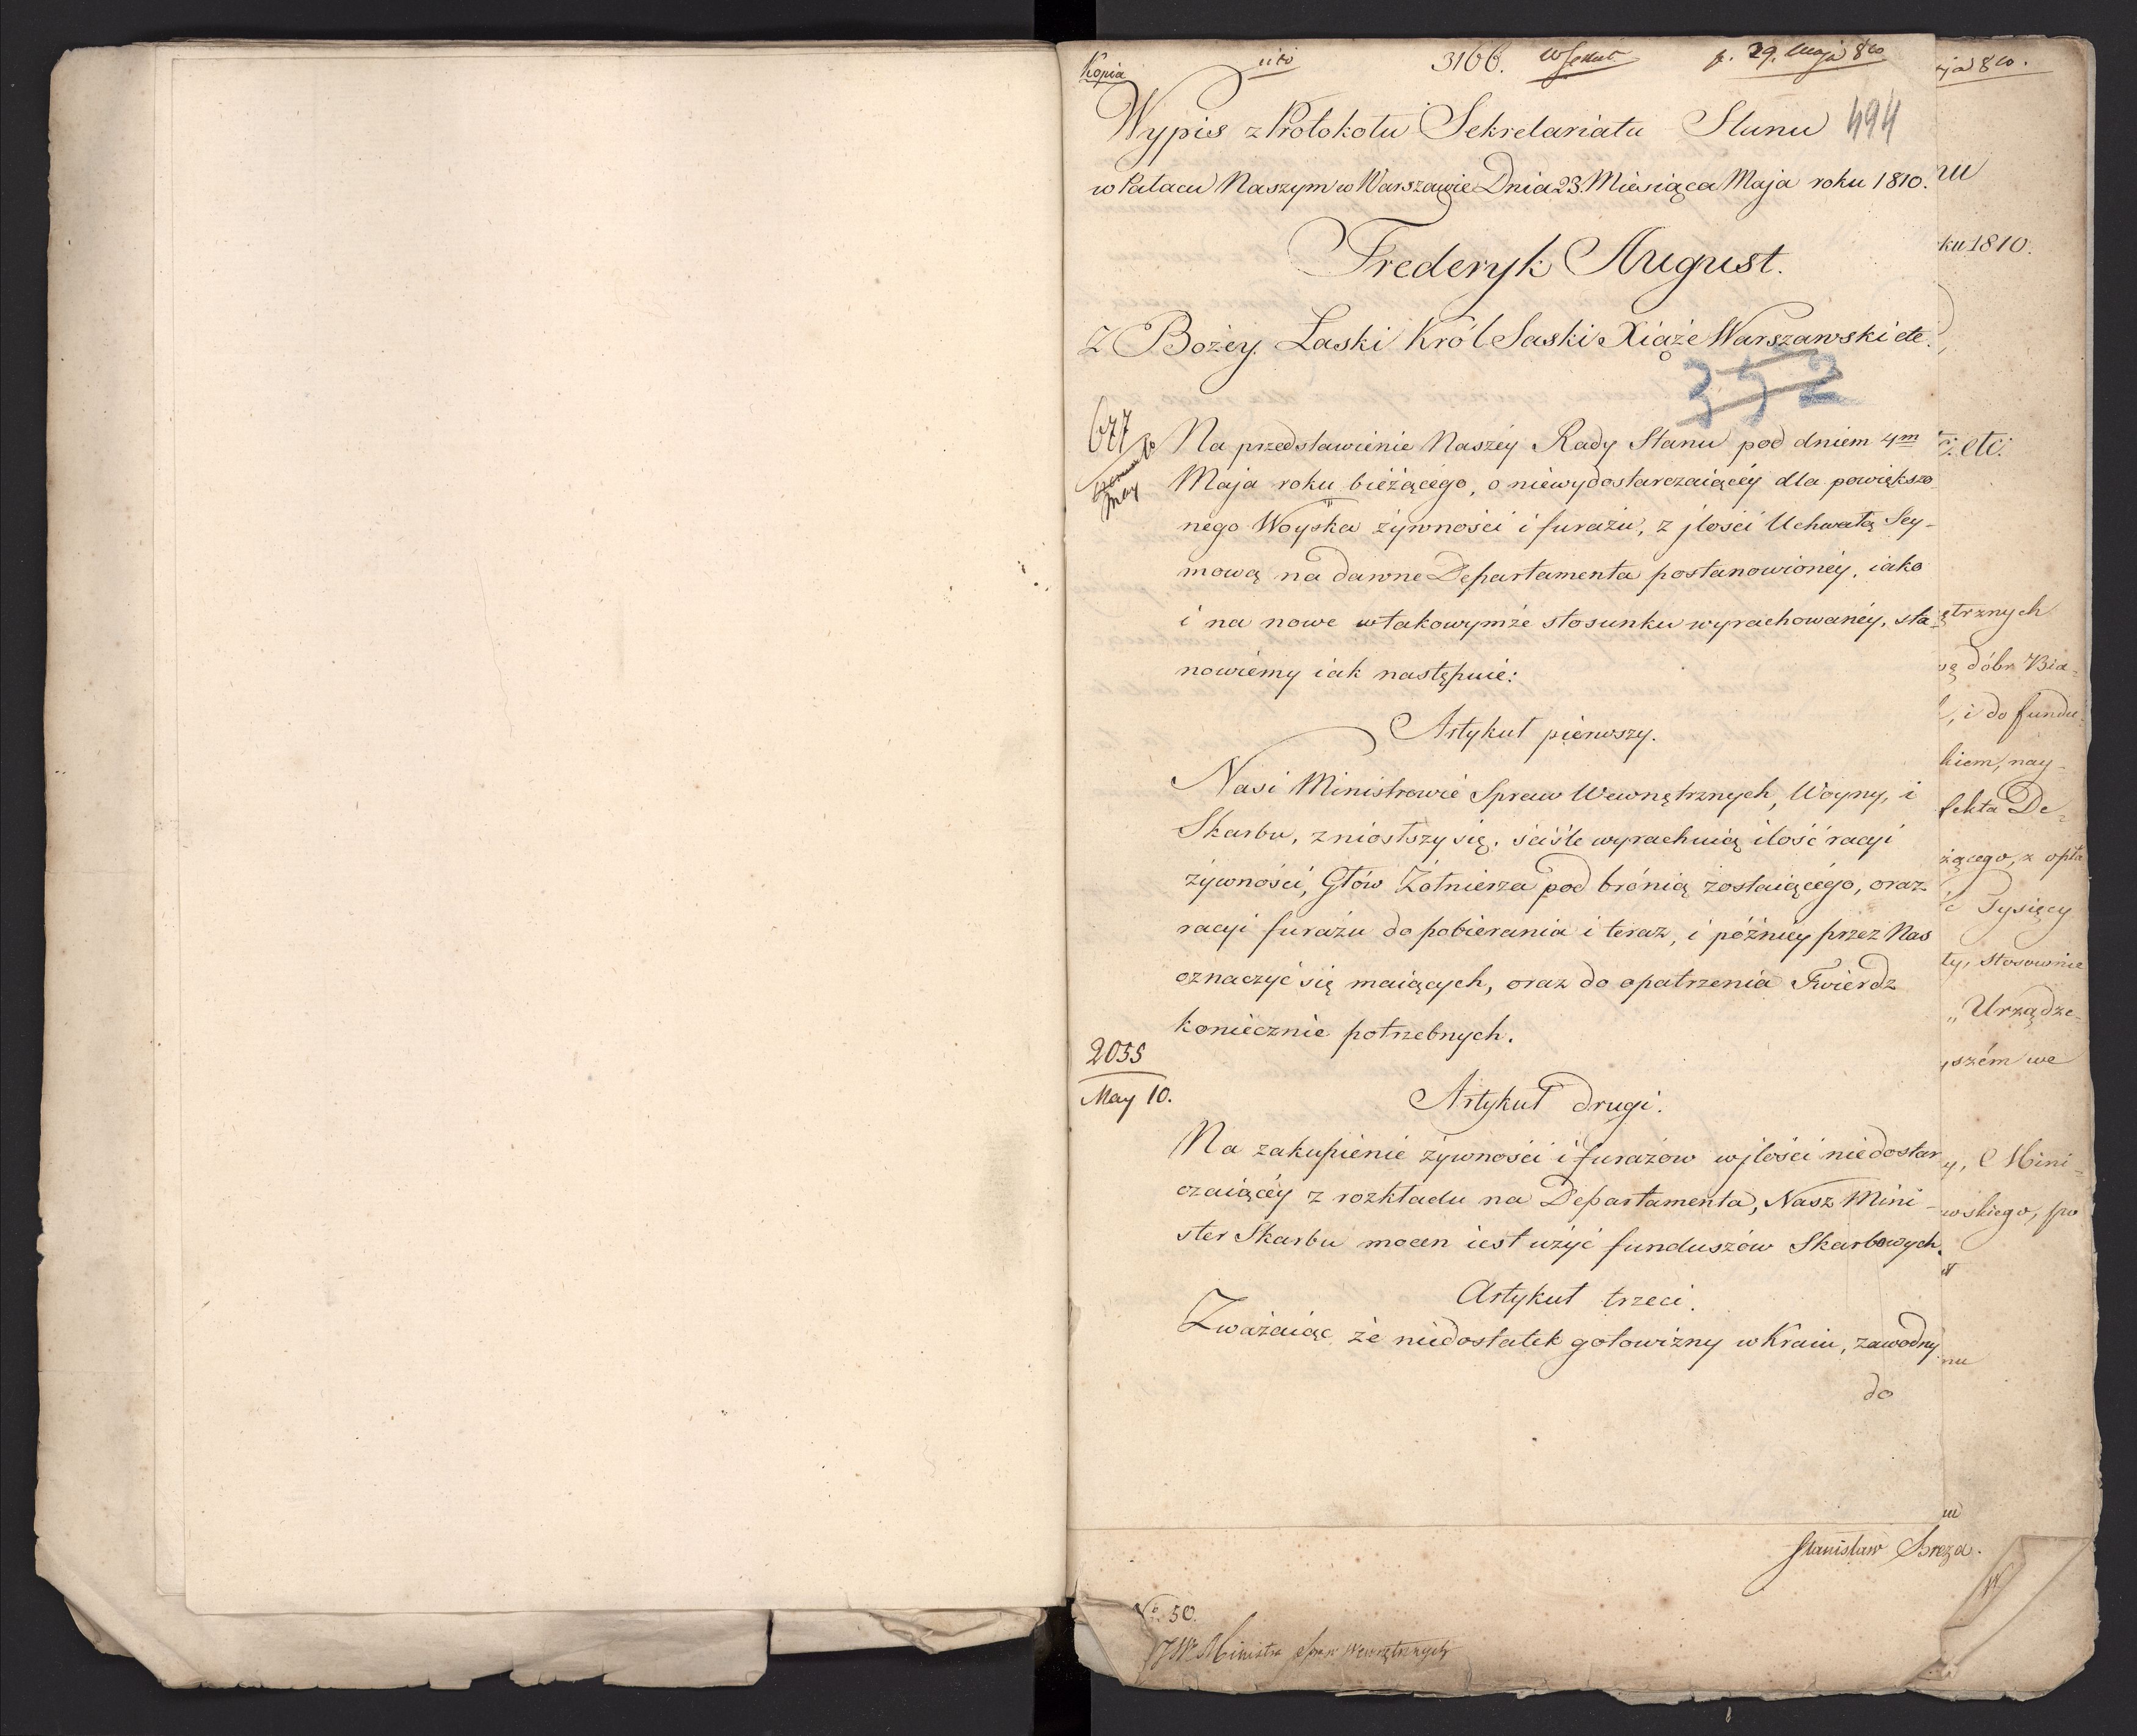 Kopia
3166.
29. Maja 810
Wypis z Protokołu Sekretariatu Stanu 494
w Pałacu Naszym w Warszawie Dnia 23. Miesiąca Maja roku 1810.
Frederyk August.
Z Bożey Łaski Król Saski Xiąże Warszawski etc.
352
677
May
Na przedstawienie Naszéy Rady Stanu pod dniem 4m
Maja roku bieżącego, o niewydostarczaiącéy dla powiększo
nego Woyska żywności i furażu, z jlości Uchwałą Sey-
mową na dawne Departamenta postanowionéy, iako
i na nowe w takowymże stosunku wyrachowanéy, sta
nowiemy iak następuie:
Artykuł pierwszy.
Nasi Ministrowie Spraw Wewnętrznych, Woyny, i
Skarbu, zniosłszy się, ściśle wyrachuią ilość racyi
żywności, Głów Żołnierza pod bronią zostaiącégo, oraz
racyi furażu do pobierania i teraz, i późniéy przez Nas
oznaczyć się maiących, oraz do opatrzenia Twierdz
koniecznie potrzebnych.
2055
May 10.
Artykuł drugi.
Na zakupienie żywności i furażów w jlości niedostar
czaiącéy z rozkładu na Departamenta, Nasz Mini-
ster Skarbu mocen iest użyć funduszów Skarbowych.
Artykuł trzeci.
Zważaiąc że niedostatek gotowizny w Kraiu, zawodny
do
ja 810.
nu
ku 1810.
etc:
ętrznych
dóbr Bia-
, i do fundu-
kiem, nay-
fekta De-
żącego, z opła
Tysięcy
ty, stosownie
„Urządze-
szém we
y, Mini-
wskiego, po
nu
Stanisław Breza.
No 50.
JW. Ministra Spraw Wewnętrznych